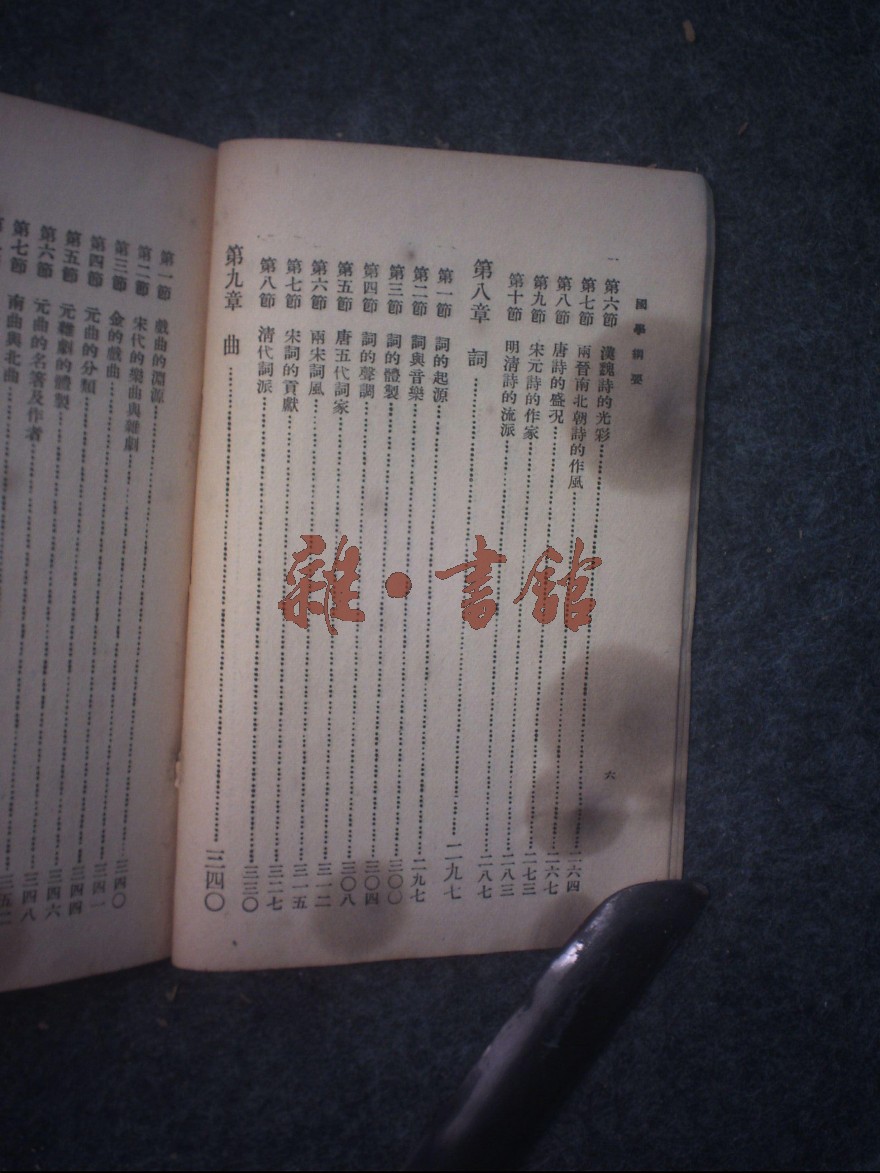 國學綱要
六
第六節 漢魏詩的光彩……二六四
第七節 兩晉南北朝詩的作風……二六七
第八節 唐詩的盛況……二七三
第九節 宋元詩的作家……二八三
第十節 明清詩的流派……二八七
第八章 詞……二九七
第一節 詞的起源……二九七
第二節 詞與音樂……三〇〇
第三節 詞的體製……三〇四
第四節 詞的聲調……三〇八
第五節 唐五代詞家……三一二
第六節 兩宋詞風……三一五
第七節 宋詞的貢獻……三二七
第八節 清代詞派……三三〇
第九章 曲……三四〇
第一節 戲曲的淵源……三四〇
第二節 宋代的樂曲與雜劇……三四一
第三節 金的戲曲……三四四
第四節 元曲的分類……三四六
第五節 元雜劇的體製……三四八
第六節 元曲的名著及作者……三五二
第七節 南曲與北曲
雜·書館